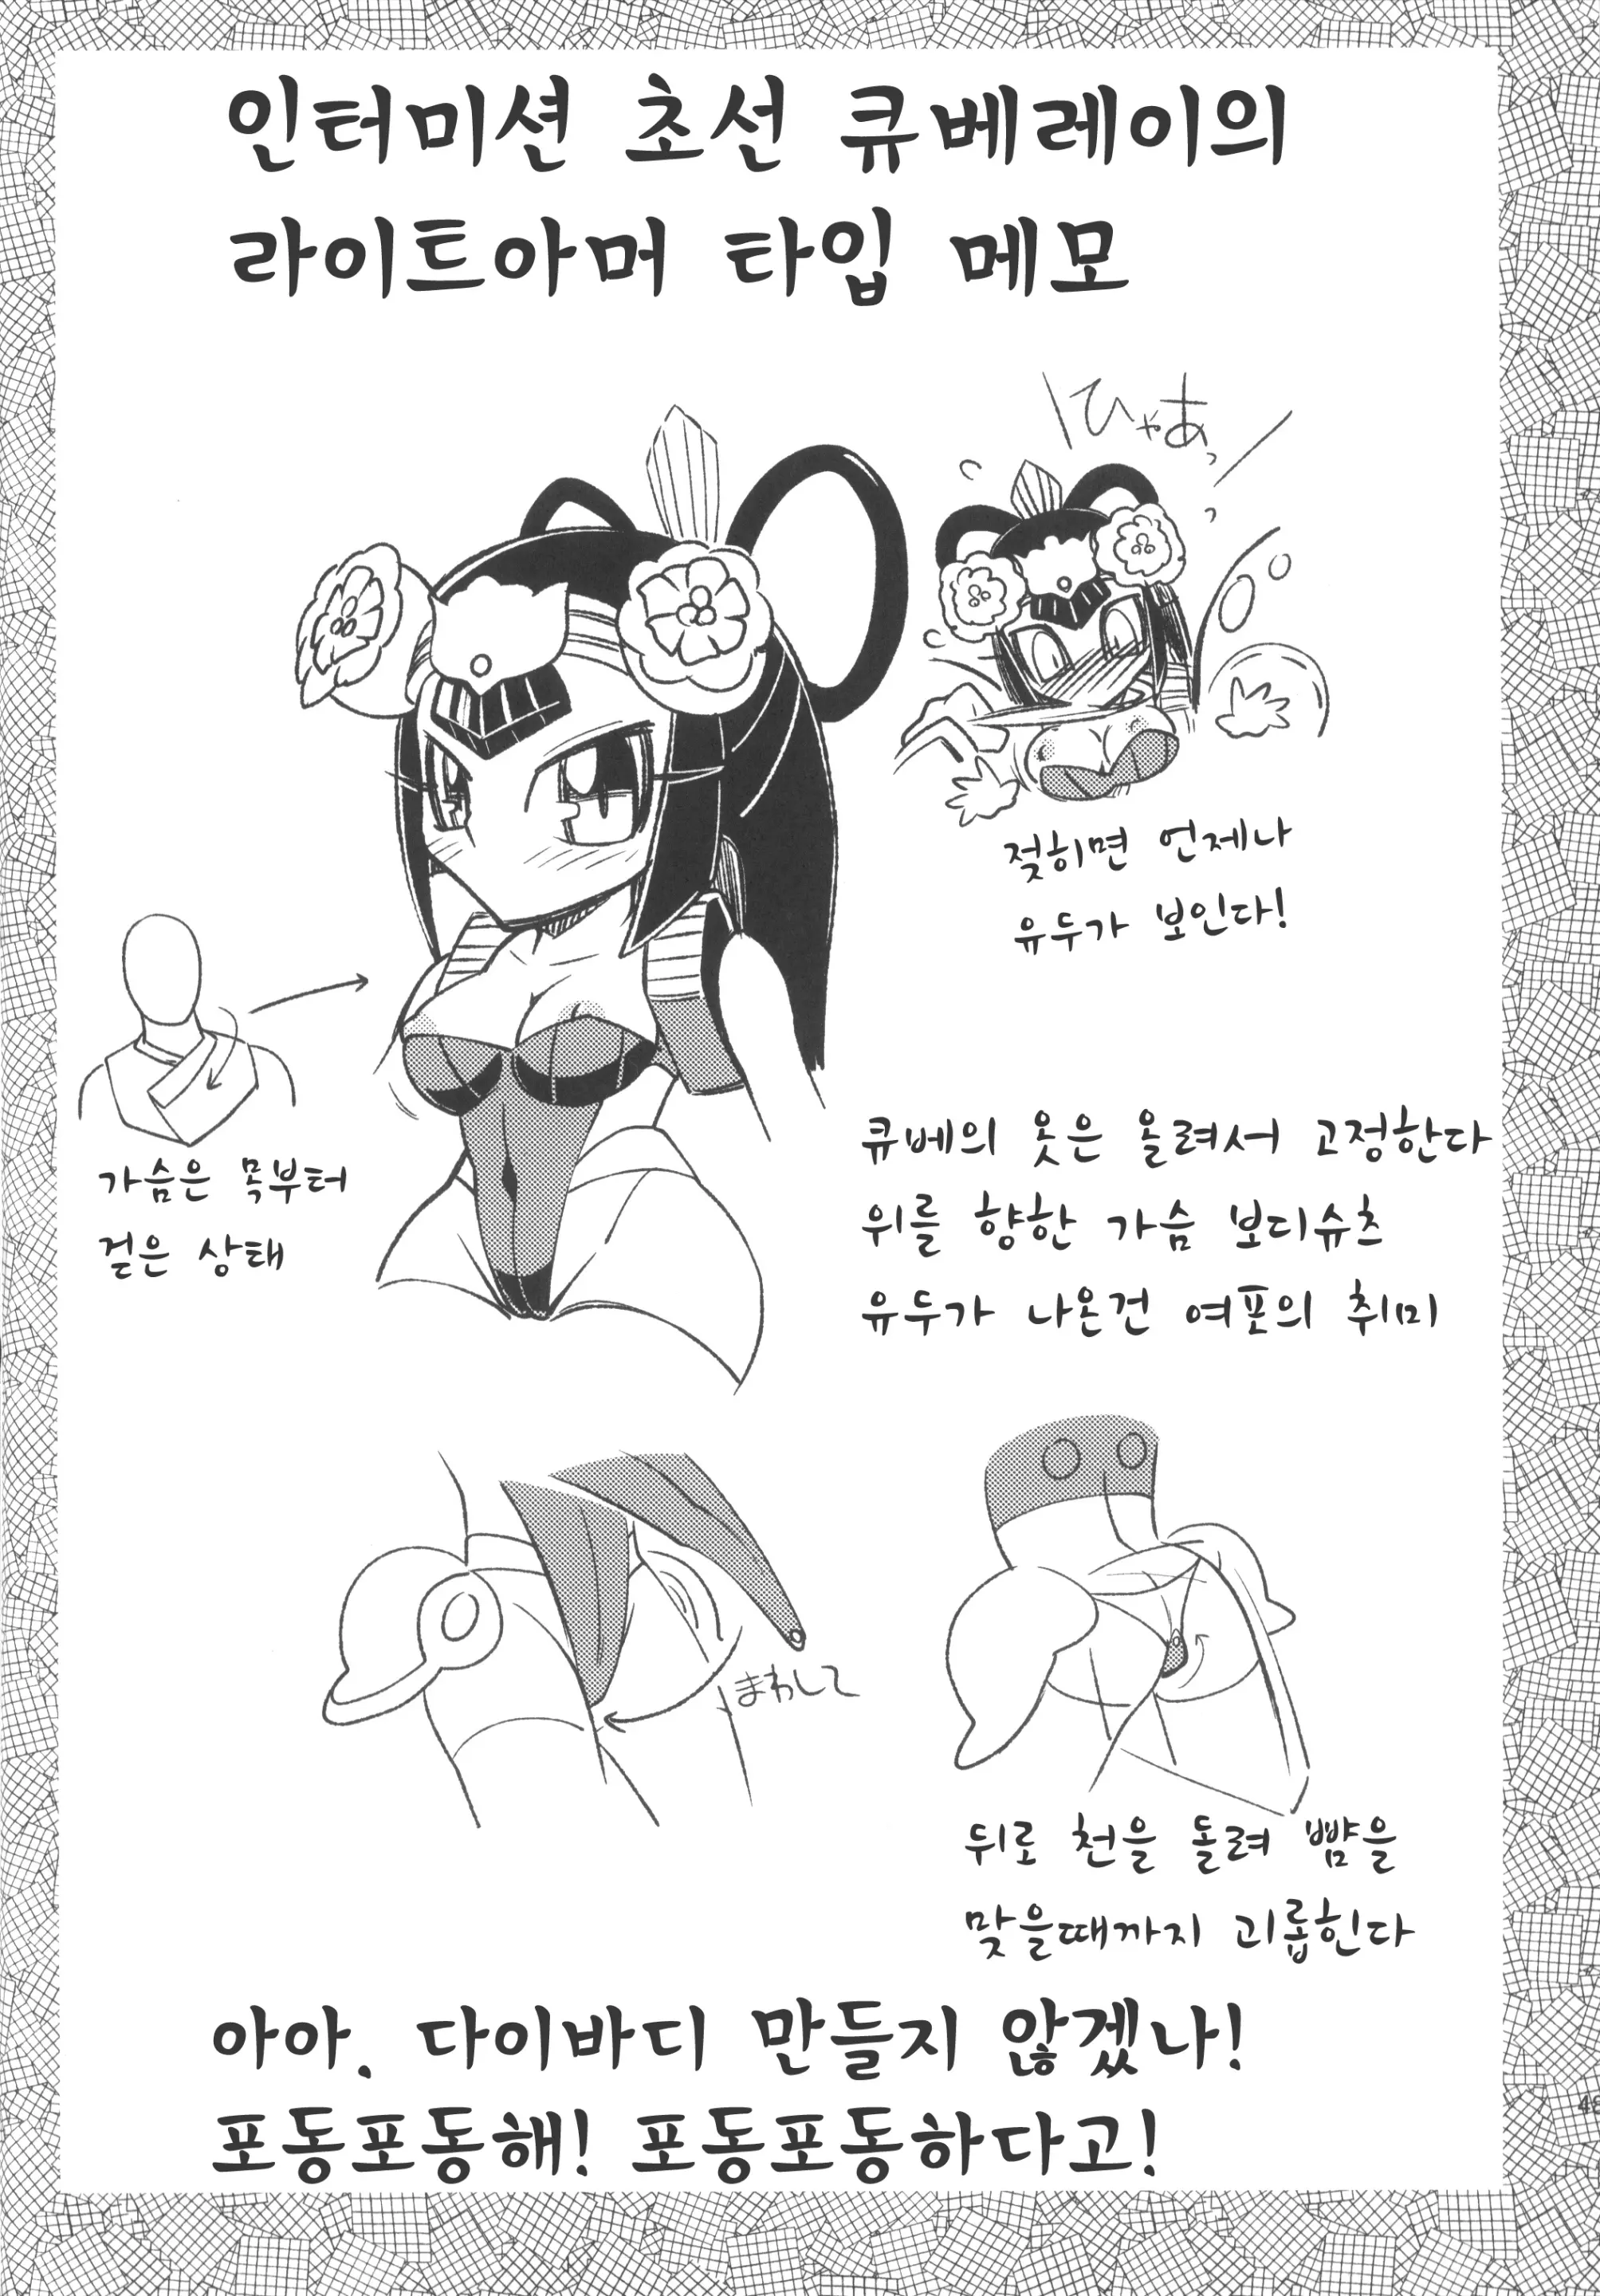 인터미션 초선 큐베레이의
라이트아머 타입 메모
ひゃあっ
젖히면 언제나
유두가 보인다!
가슴은 목부터
걷은 상태
큐베의 옷은 올려서 고정한다
위를 향한 가슴 보디슈츠
유두가 나온건 여포의 취미
まわして
뒤로 천을 돌려 뺨을
맞을때까지 괴롭힌다
아아. 다이바디 만들지 않겠나!
포동포동해! 포동포동하다고!